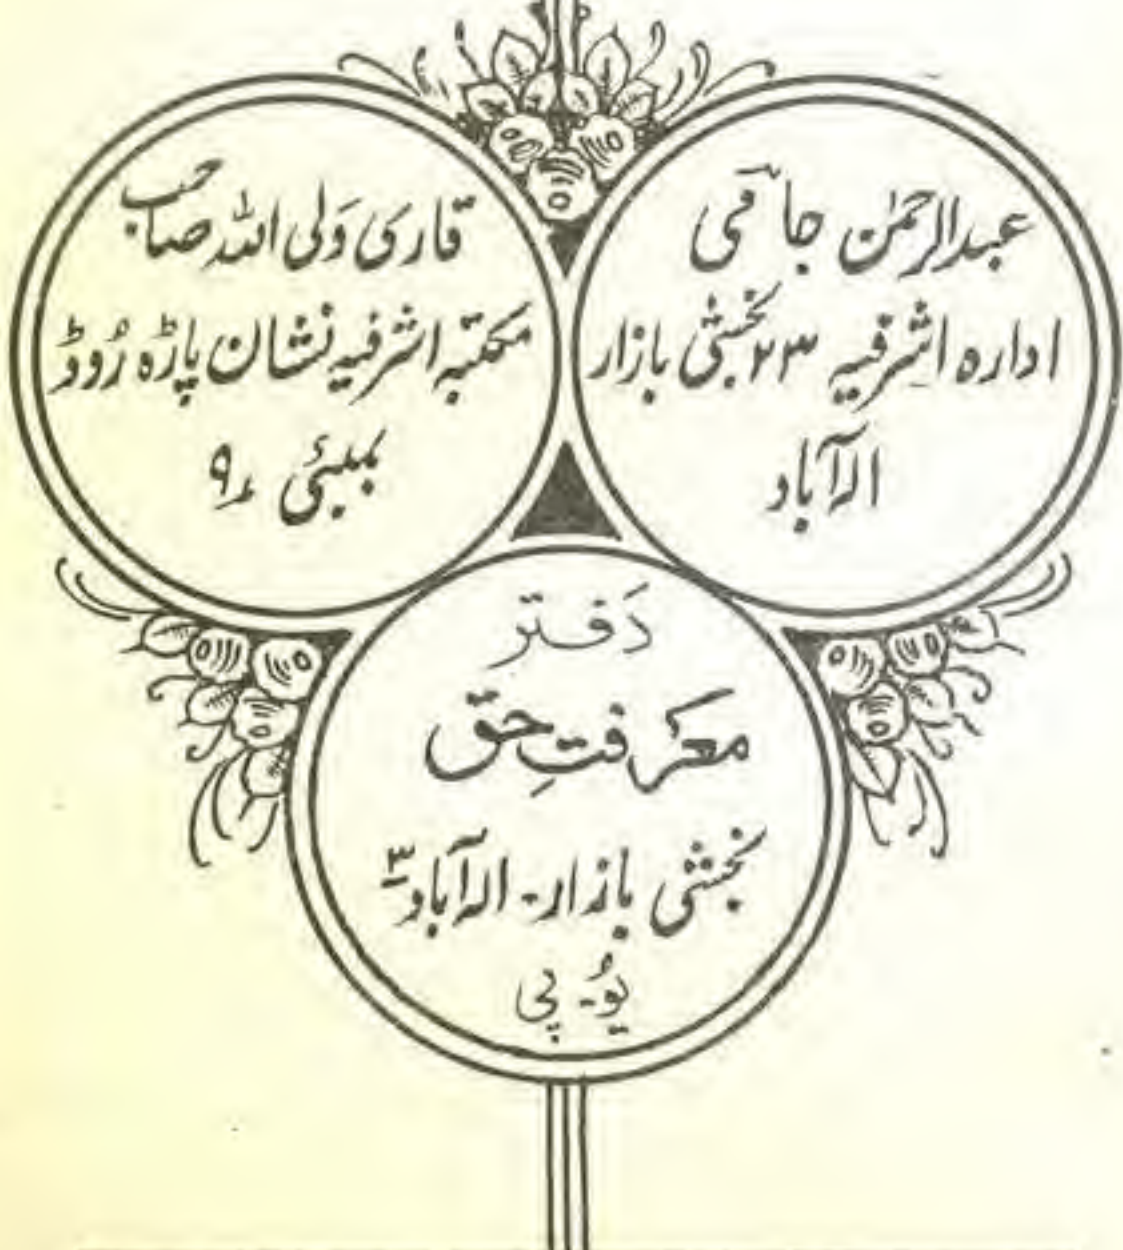 عبدالرحمٰن جامی
ادارہ اشرفیہ ۲۳ بخشی بازار
الہ آباد
قاری وَلی اللہ صاحب
مکتبہ اشرفیہ نشان پاڑہ رُوڈ
بمبئی ۹
دَفتر
معرفتِ حق
بخشی بازار - الہ آباد ۳
یُو - پی